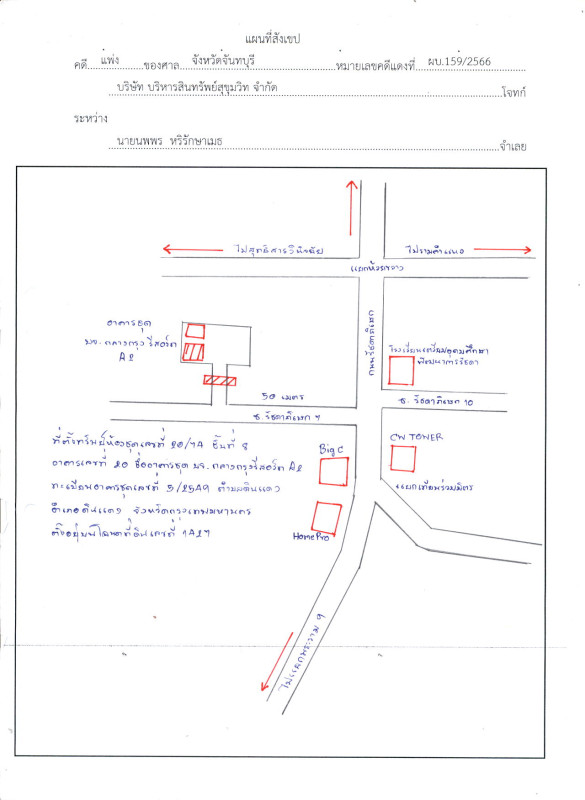 แผนที่สังเขป
คดี แพ่ง ของศาล จังหวัดจันทบุรี หมายเลขคดีแดงที่ ผบ.159/2566
บริษัท บริหารสินทรัพย์สุขุมวิท จำกัด โจทก์
ระหว่าง
นายนพพร หริรักษาเมธ จำเลย
ไปสุทธิสารวินิจฉัย
ไปรามคำแหง
แยกห้วยขวาง
ถนนรัชดาภิเษก
อาคารชุด
บจ. กลางกรุง รีสอร์ท
A2
โรงเรียนเตรียมอุดมศึกษา
พัฒนาการรัชดา
50 เมตร
ซ. รัชดาภิเษก 7
ซ. รัชดาภิเษก 10
ที่ตั้งทรัพย์ห้องชุดเลขที่ 20/7A ชั้นที่ 8
อาคารเลขที่ 20 ชื่ออาคารชุด บจ. กลางกรุงรีสอร์ท A2
ทะเบียนอาคารชุดเลขที่ 5/2549 ตำบลดินแดง
อำเภอดินแดง จังหวัดกรุงเทพมหานคร
ตั้งอยู่บนโฉนดที่ดินเลขที่
Big C
CW TOWER
แยกเทียมร่วมมิตร
HomePro
ไปแยกพระราม 9